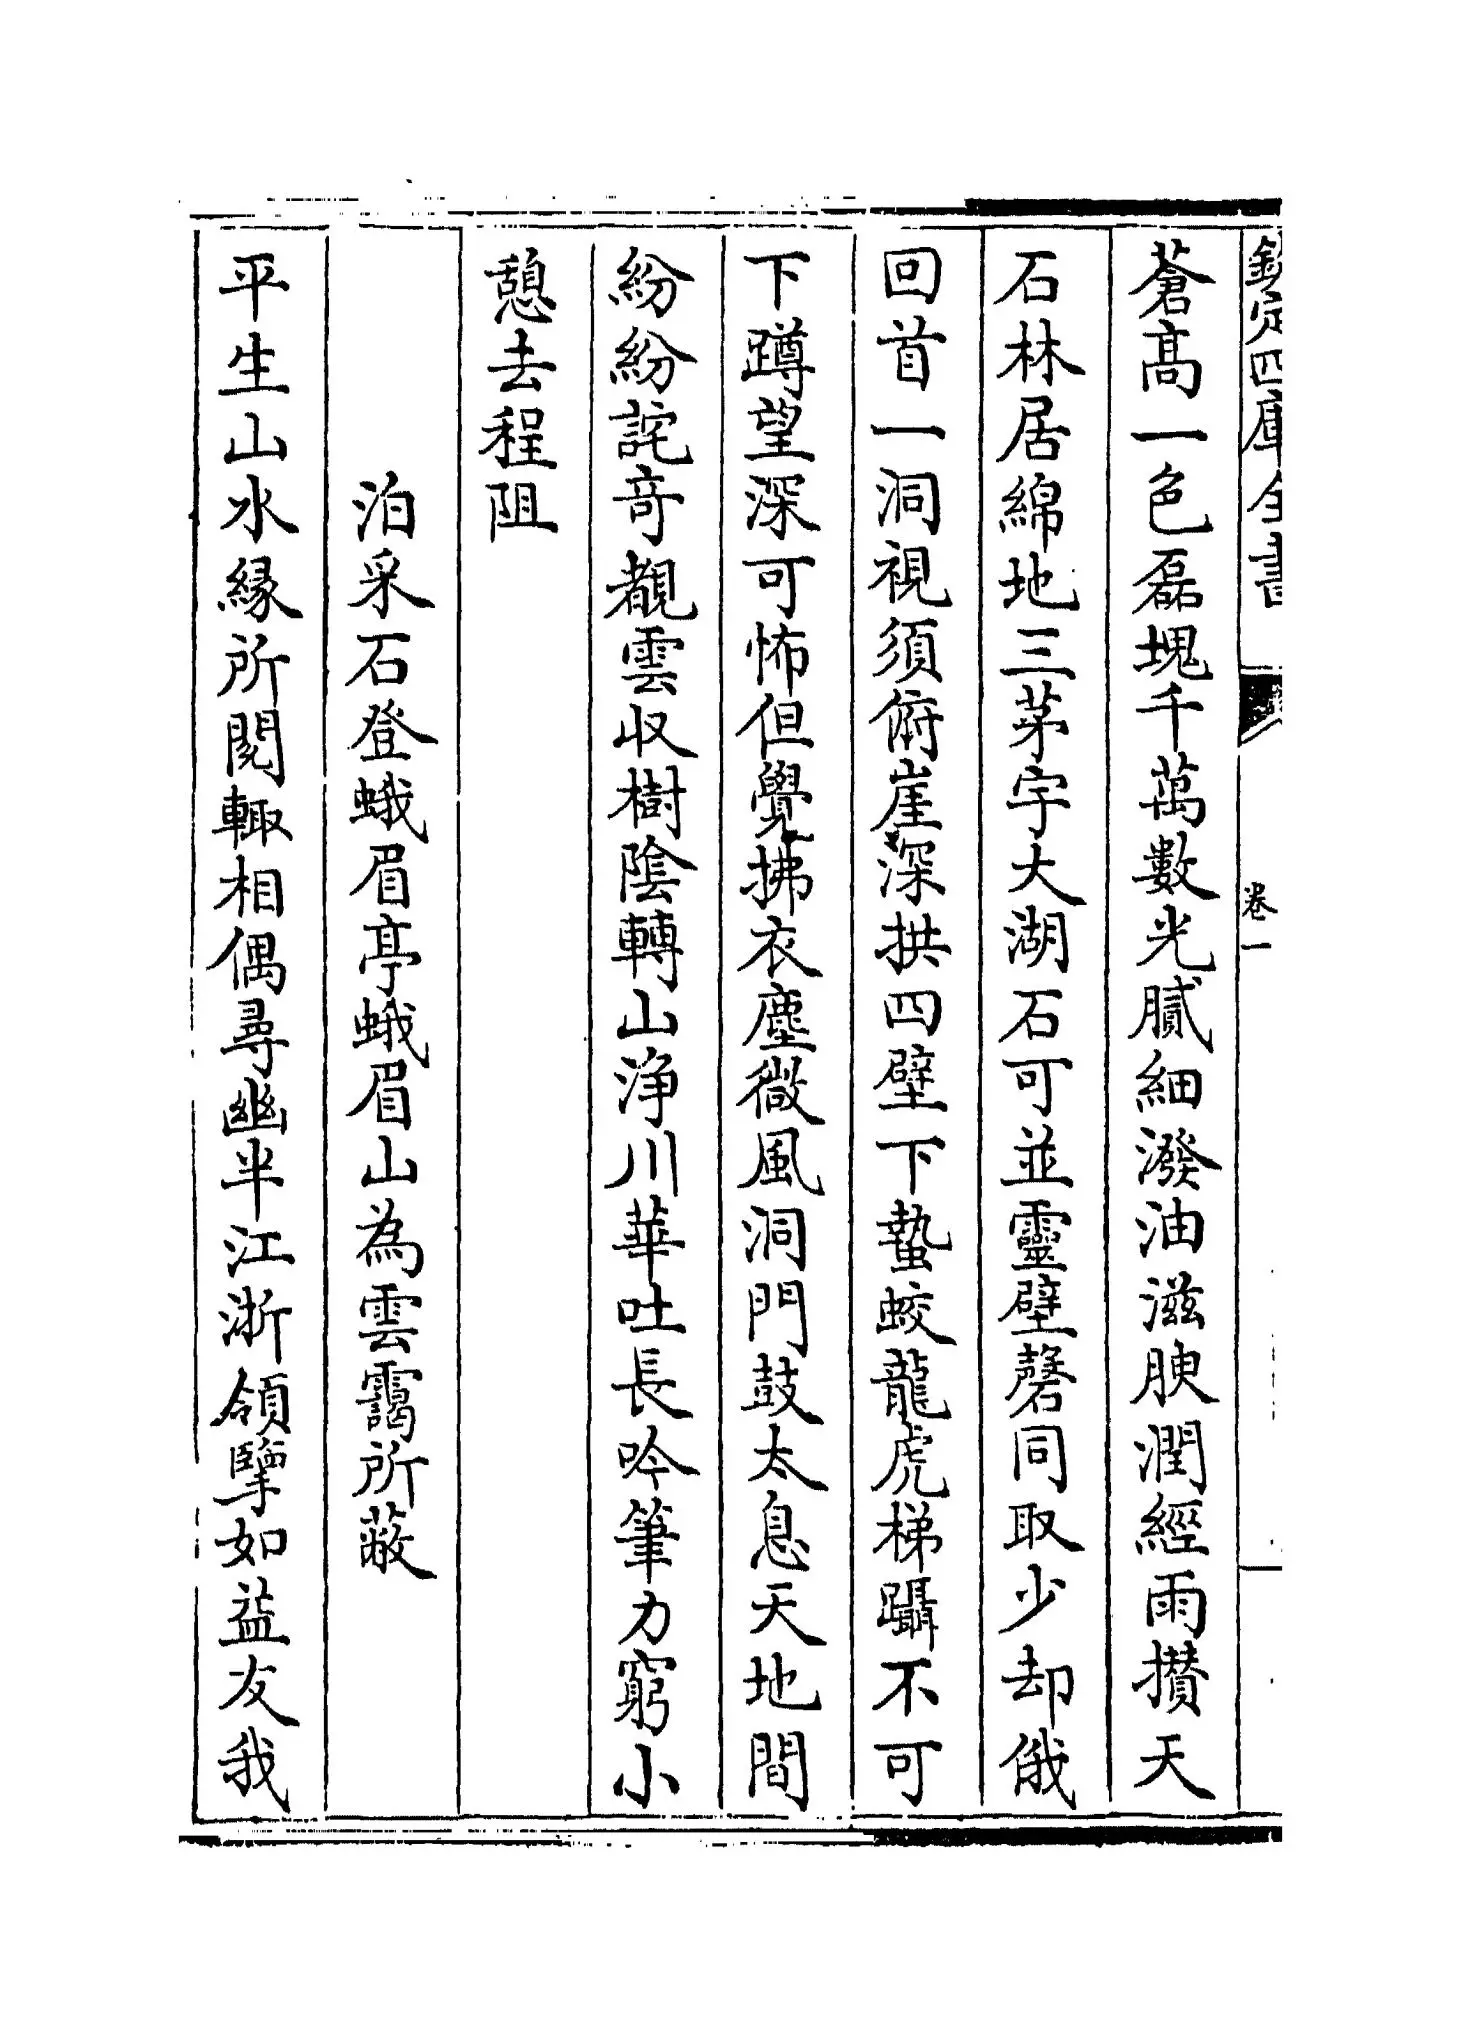 欽定四庫全書
卷一
蒼髙一色磊塊千萬數光膩細潑油滋腴潤經雨攢天
石林居綿地三茅宇大湖石可並靈壁磬同取少却俄
回首一洞視須俯崖深拱四壁下蟄蛟龍虎梯躡不可
下蹲望深可怖但覺拂衣塵微風洞門鼓太息天地間
紛紛詫竒觀雲収樹陰轉山浄川華吐長吟筆力窮小
憩去程阻
泊采石登蛾眉亭蛾眉山為雲靄所蔽
平生山水縁所閱輙相偶尋幽半江浙領擥如益友我